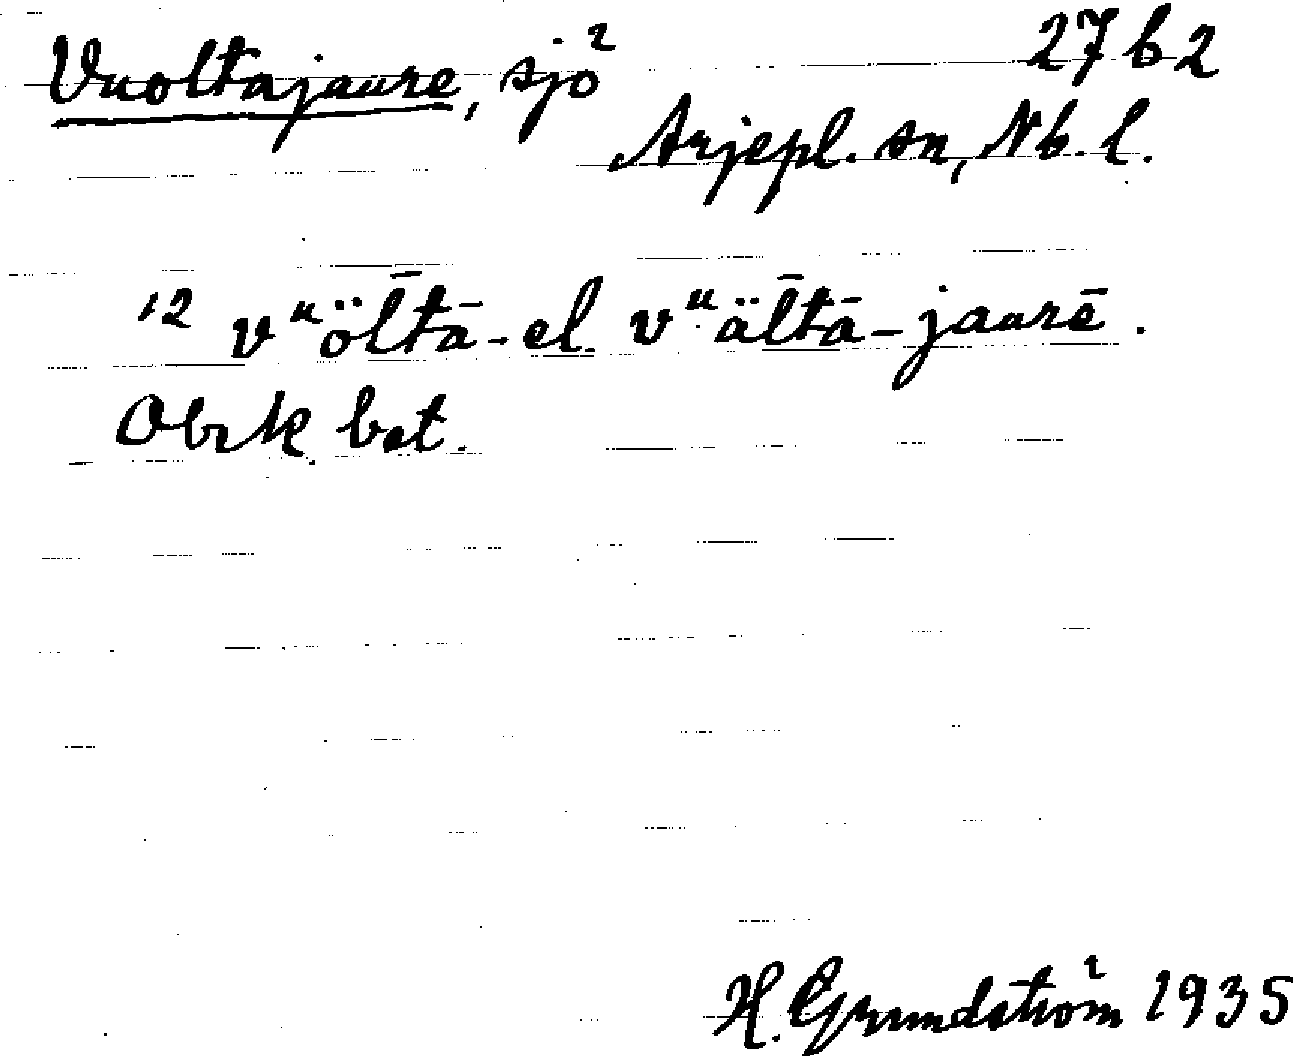 Vuoltajaure, sjö 27 b 2
Arjepl. sn, Nb. l.
12 vᵘöl̄tā- el. vᵘäl̄tā-jaurē.
Obsk. bet.
H. Grundström 1935